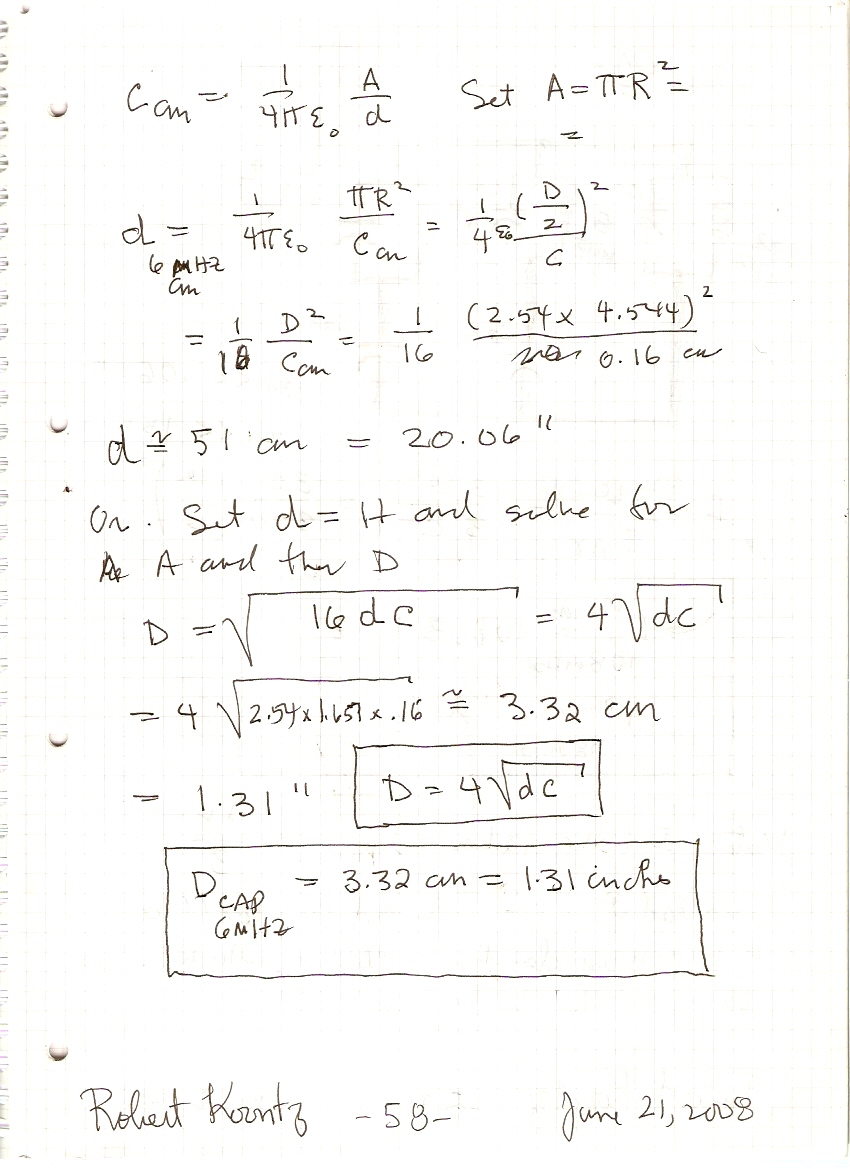 C cm = 1/4πε₀ A/d Set A = πR² =
=
d 6 MHZ cm = 1/4πε₀ πR²/C cm = 1/4ε₀ (D/2)²/C
= 1/16 D²/C cm = 1/16 (2.54 x 4.544)²/0.16 cm
d ≅ 51 cm = 20.06"
Or. Set d = H and solve for
A and then D
D = √16 dC = 4√dC
= 4 √2.54 x 1.657 x .16 ≅ 3.32 cm
= 1.31" D = 4√dC
D CAP 6MHZ = 3.32 cm = 1.31 inches
Robert Koontz -58- June 21, 2008